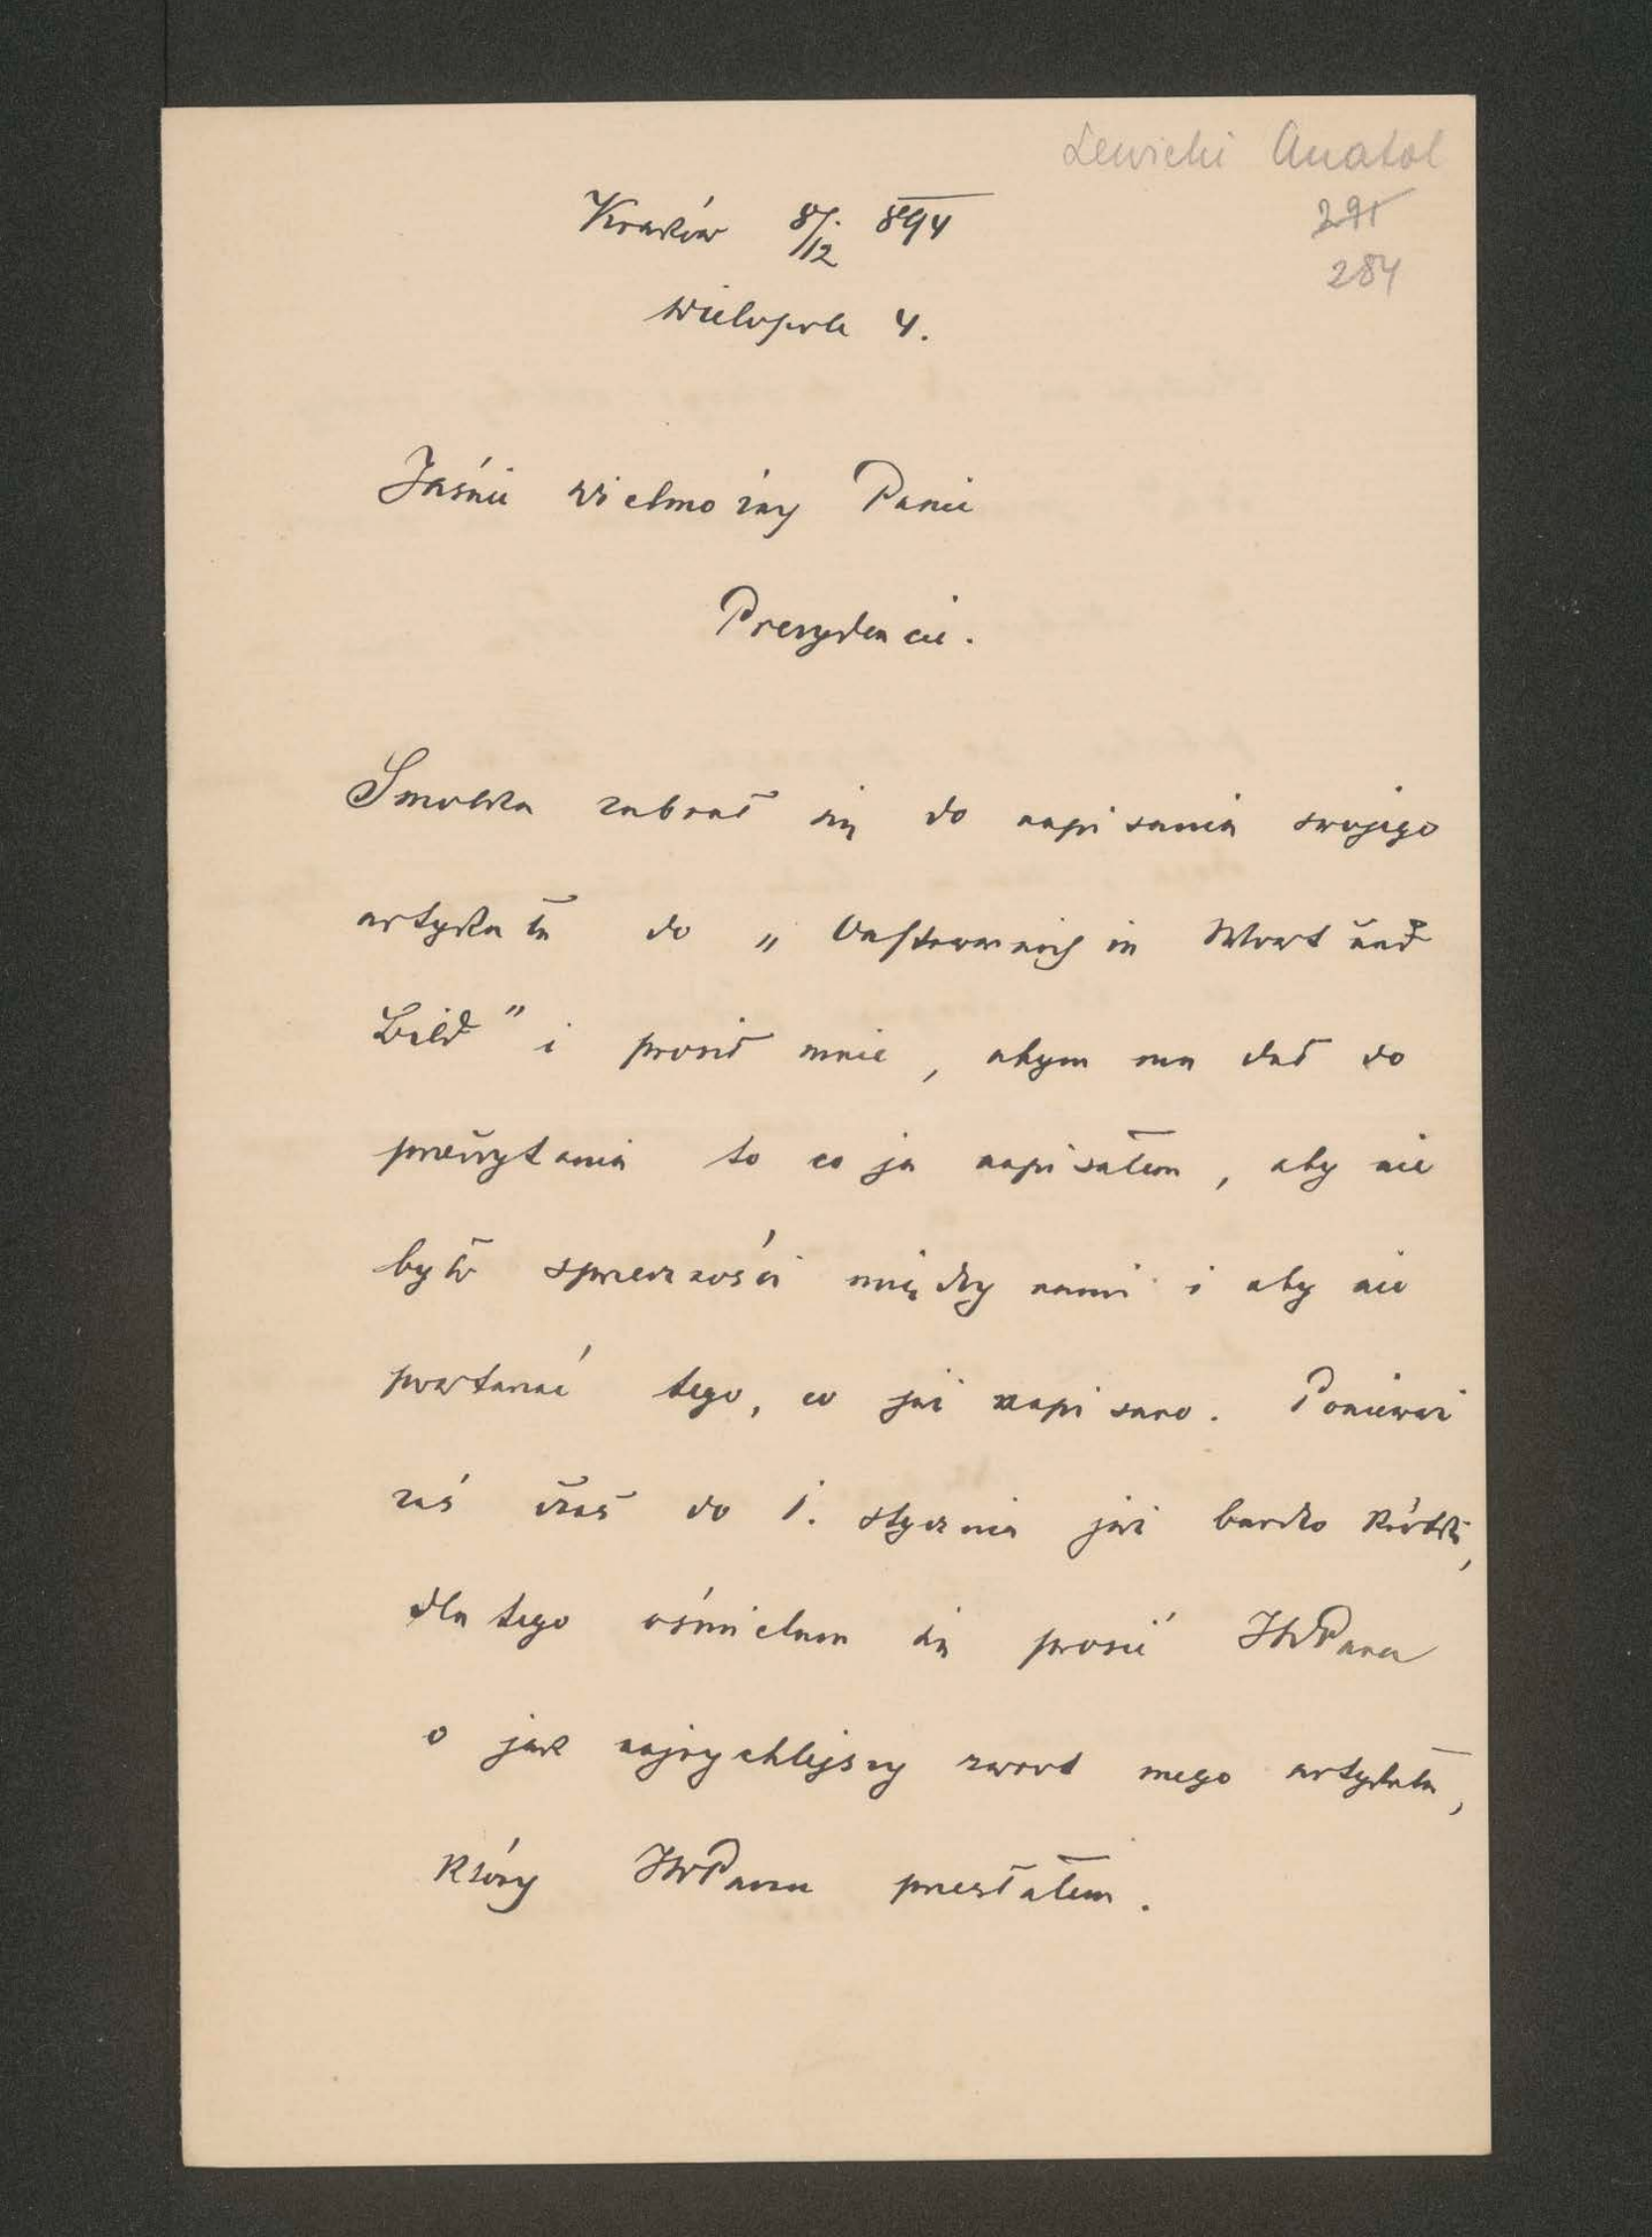 Lewicki Anatol
291
284
Kraków 8/12. 894
Wielopole 4.
Jaśnie Wielmożny Panie
Prezydencie.
Smolka zabrał się do napisania swojego
artykułu do „Oesterreich in Wort und
Bild" i prosił mnie, abym mu dał do
przeczytania to co ja napisałem, aby nie
było sprzeczności między nami i aby nie
powtarzać tego, co już napisano. Ponieważ
zaś czas do 1. stycznia już bardzo krótki,
dla tego ośmielam się prosić JWPana
o jak najrychlejszy zwrot mego artykułu,
który JWPanu przesłałem.